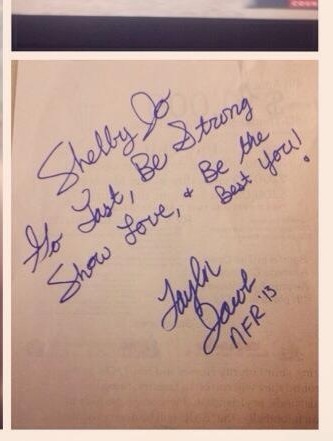 Shelby Jo
Go Fast, Be Strong
Show Love, + Be the
Best You!
Taylor
Jacob
NFR '13